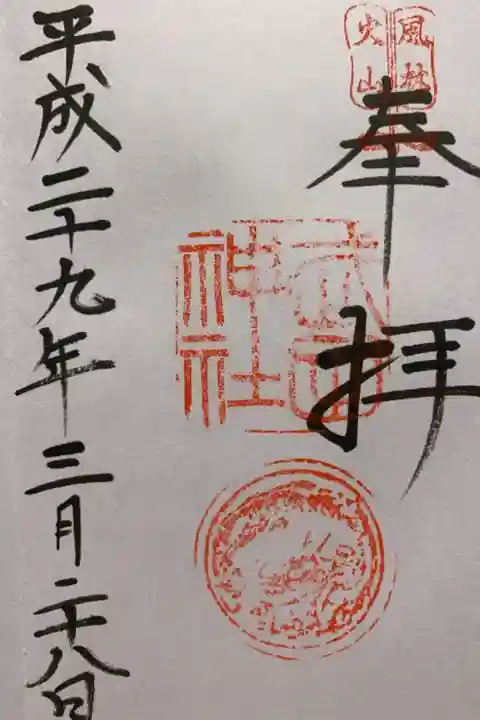 風林
火山
奉拝
武田
神社
平成二十九年三月二十八日